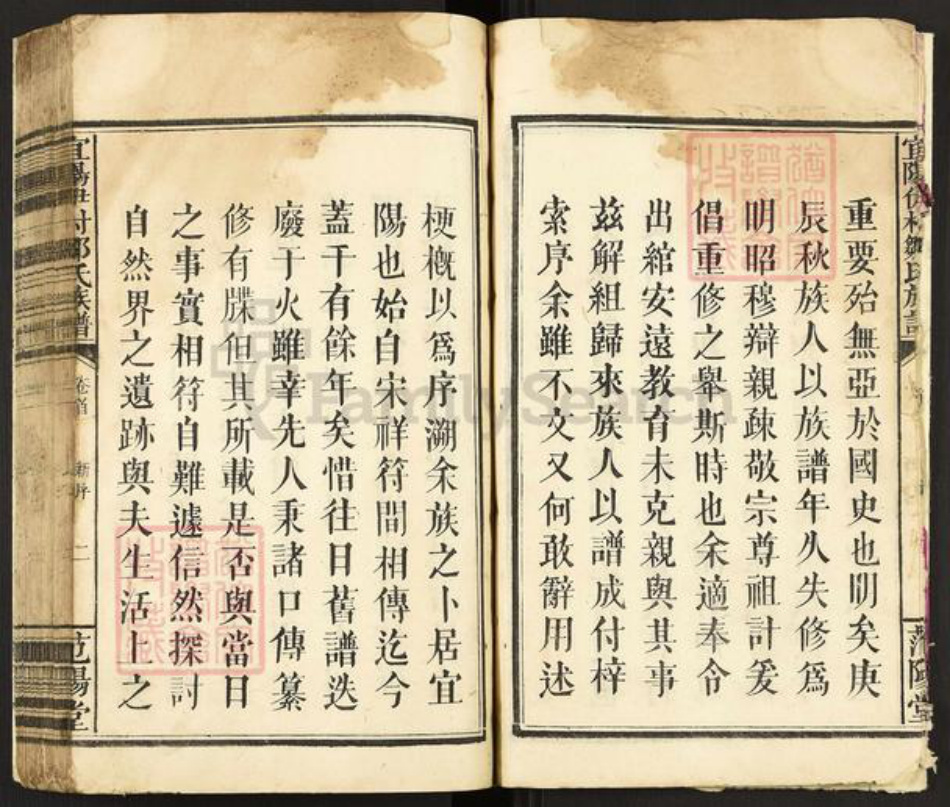 重要殆無亞於國史也明矣庚
辰秋族人以族譜年久失修爲
明昭穆辯親疎敬宗尊祖計爰
倡重修之舉斯時也余適奉令
出綰安遠教育未克親與其事
茲解組歸來族人以譜成付梓
索序余雖不文又何敢辭用述
梗概以爲序溯余族之卜居宜
陽也始自宋祥符間相傳迄今
蓋千有餘年矣惜往日舊譜迭
廢于火雖幸先人秉諸口傳纂
修有牒但其所載是否與當日
之事實相符自難遽信然探討
自然界之遺跡與夫生活上之
宜陽 村鄒氏族譜
卷首
新序
二
范陽堂
FamilySearch